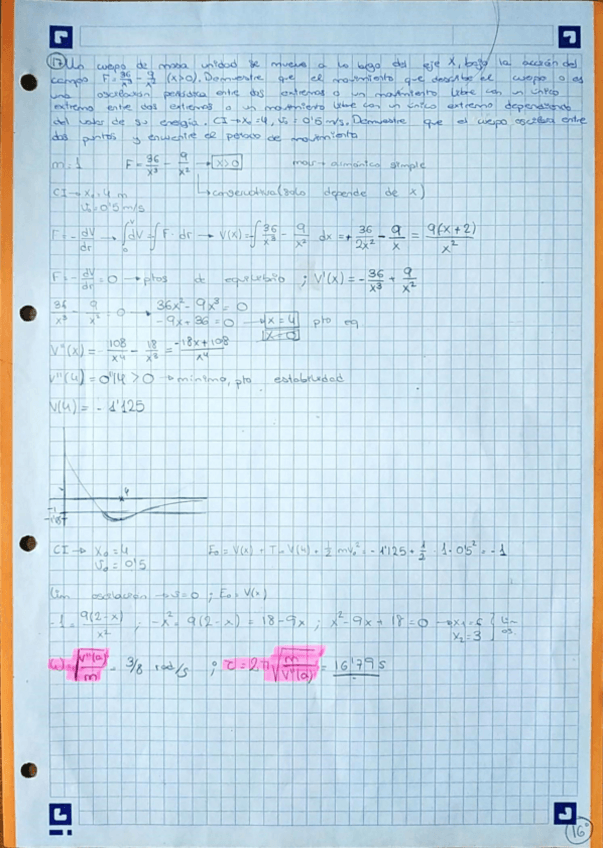 17 Un cuerpo de masa unidad se mueve a lo largo del eje X, bajo la acción del
campo F = 36/x³ - 9/x² (x>0). Demuestre que el movimiento que describe el cuerpo o es
una oscilación periódica entre dos extremos o un movimiento libre con un único
extremo entre dos extremos o un movimiento libre con un único extremo dependiendo
del valor de su energía. CI→ x₀=4, v₀=0'5 m/s. Demuestre que el cuerpo oscila entre
dos puntos y encuentre el periodo de movimiento
m=1 F = 36/x³ - 9/x² → x>0 mas→ armónico simple
CI → x₀=4 m ↳ conservativa (solo depende de x)
v₀=0'5 m/s
F = - dV/dr → ∫dV = ∫F· dr → V(x) = ∫ 36/x³ - 9/x² dx = + 36/2x² - 9/x = 9(x+2)/x²
F = - dV/dr = 0 → ptos de equilibrio ; V'(x) = - 36/x³ + 9/x²
36/x³ - 9/x² = 0 → 36x² - 9x³ = 0
-9x + 36 = 0 → x=4 pto eq
x=0
V''(x) = 108/x⁴ - 18/x³ = -18x+108/x⁴
V''(4) = 0'14 > 0 → mínimo, pto estabilidad
V(4) = - 1'125
4
-1
CI → x₀ = 4 E₀ = V(x) + T = V(4) + 1/2 mv₀² = - 1'125 + 1/2 · 1 · 0'5² = -1
v₀ = 0'5
Lim oscilación → v=0 ; E₀ = V(x)
-1 = 9(2-x)/x² ; -x² = 9(2-x) = 18-9x ; x² - 9x + 18 = 0 → x₁=6
x₂=3
ω = √(V''(a)/m) = 3/8 rad/s ; τ = 2π √(m/V''(a)) = 16'79 s
16